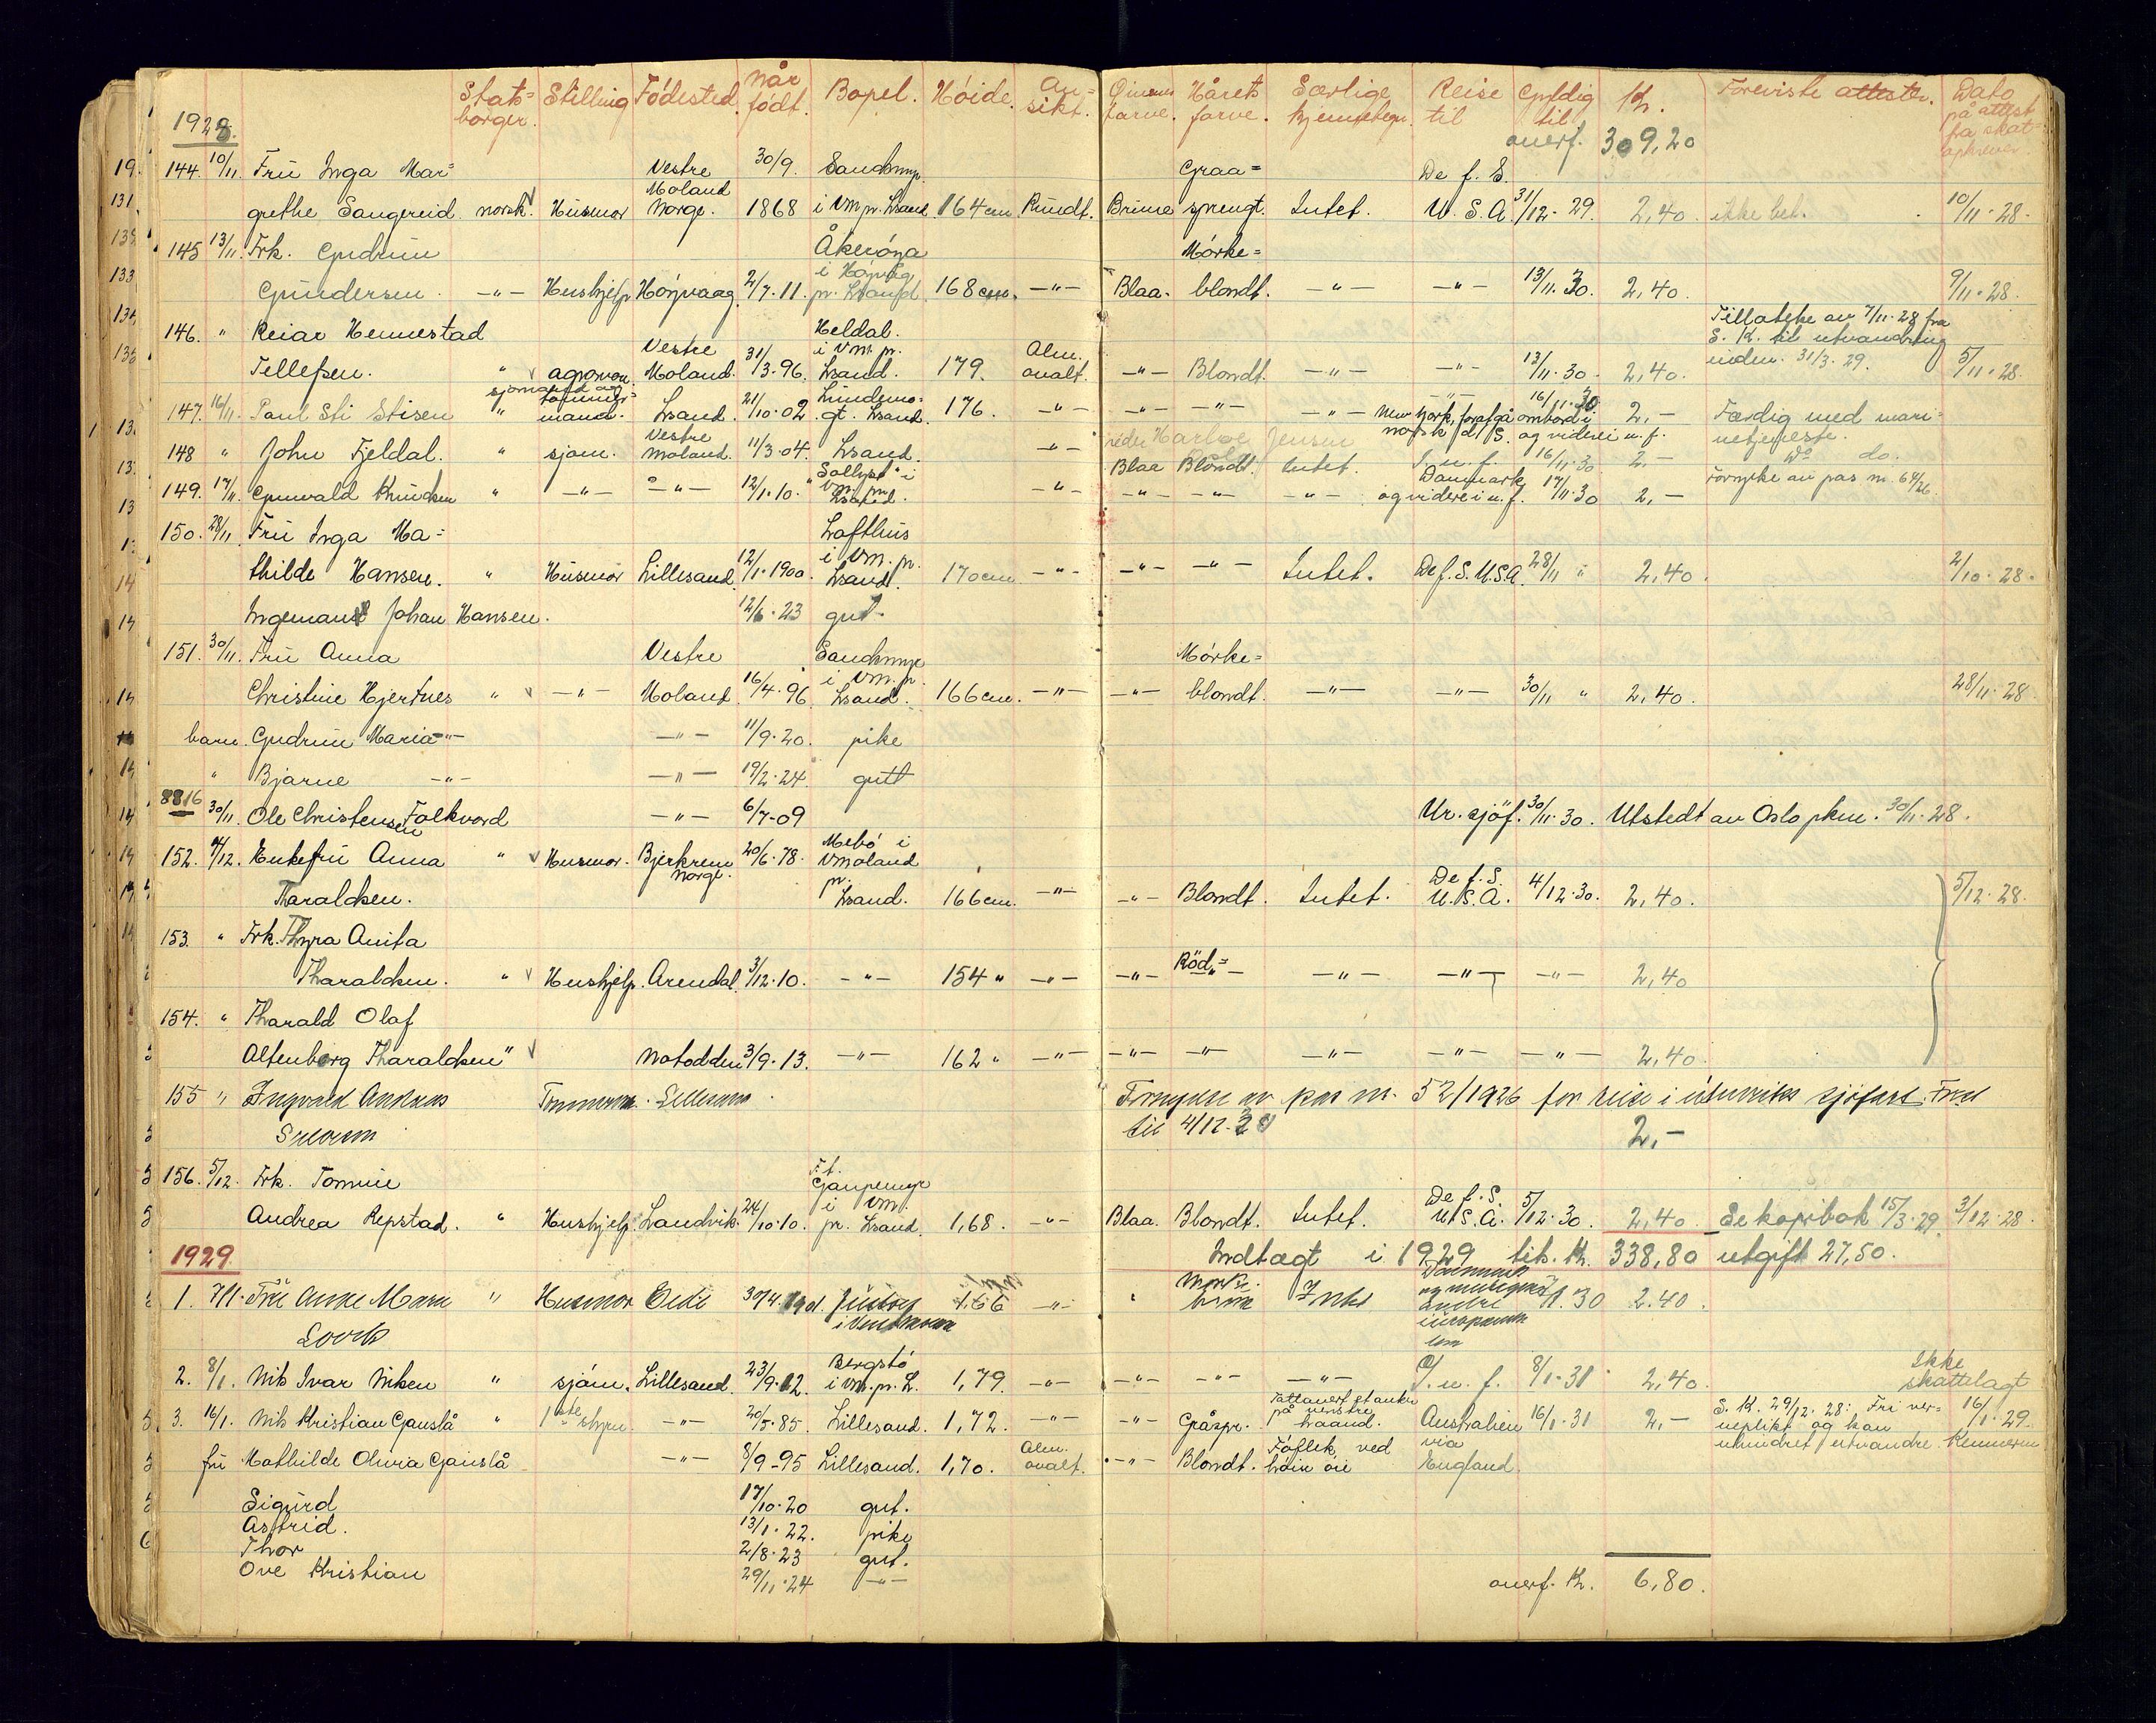 Stats= Stilling Födested. Når Bopel. Höide. An= Öinenes Hårets Særlige Reise Gyldig Kr. Foreviste attester. Dato
borger. födt. sikt. farve. farve. kjennetegn. til til på attest
1928. overf. 309,20 fra skat=
144. 10/11. Fru Inga Mar= Vestre 30/9. Sandsmyr. Graa= De f. S.
grethe Saugereid. norsk. Husmor Moland Norge. 1868 i Vm pr. Lsand. 164 cm Rundt. Brune sprengt. Intet. U. S. A. 31/12. 29. 2,40. ikke bet. 10/11. 28.
145 13/11. Frk. Gudrun Åkeröya Mörke=
Gundersen. —"— Hushjelp Hörvaag. 2/7. 11. i Hörvåg pr. Lsand. 168 cm. —"— Blaa. blondt. —"— —"— 13/11. 30. 2,40. 9/11. 28.
146. " Reiar Hennestad Heldal. Tillatelse av 7/11. 28 fra
Tellefsen. " agronom. Vestre Moland. 31/3. 96. i Vm. pr. Lsand. 179. Alm. ovalt. —"— Blondt. —"— —"— 13/11. 30. 2,40. S. K. til utvandring inden 31/3. 29. 5/11. 28.
147. 16/11. Paul Sti Stisen " sjömand og tömmer= mand. Lsand. 21/10. 02. gt. Lsand. 176. —"— —"— —"— —"— New York, forafgå ombord i norsk d/S. og videre i u. f. 16/11. 30 2,— Færdig med mari= netjeneste.
148 " John Fjeldal. " sjöm. Vestre Moland. 11/3. 04. Lsand. —"— Blaa Blondt. Intet. I. u. f. 16/11. 30 2,— do.
149. 17/11. Gunvald Knudsen " —"— —"— 12/1. 10. "Sollyst" i Vm. pr. Lsand. —"— —"— —"— —"— Danmark og videre i u. f. 17/11. 30 2,— Fornyelse av pas nr. 64/26.
150. 28/11 Fru Inga Ma= Lofthus
thilde Hansen. " Husmor Lillesand. 12/1. 1900. i Vm. pr. Lsand. 170 cm. —"— —"— —"— Intet. De f. S. U.S.A. 28/11 " 2,40. 2/10. 28.
Ingemann Johan Hansen. 12/6. 23 gut.
151. 30/11. Fru Anna Vestre Sandsmyr Mörke=
Christine Hjertnes " —"— Moland. 16/4. 96. i Vm. pr. Lsand. 166 cm. —"— —"— blondt. —"— —"— 30/11 " 2,40. 28/11. 28.
barn. Gudrun Maria —"— —"— 11/9. 20. pike
" Bjarne —"— —"— 19/2. 24 gutt
8816 30/11. Ole Christensen Falkvard —"— 6/7-09 Ur. sjöf. 30/11. 30. Utstedt av Oslo pkm. 30/11. 28.
152. 4/12. Enkefru Anna " Husmor. Bjerkrem Norge. 20/6. 78. Mebö i Vmoland
Tharaldsen. pr. Lsand. 166 cm. —"— —"— Blondt. Intet. De f. S. U. S. A. 4/12. 30. 2,40. 5/12. 28.
153. " Frk. Thyra Anita
Tharaldsen. " Hushjelp. Arendal. 3/12. 10. —"— 154 " —"— —"— Röd= —"— —"— —"— 2,40
154. " Tharald Olaf
Altenborg Tharaldsen " Notodden 3/9. 13. —"— 162 " —"— —"— —"— —"— —"— —"— 2,40.
155 " Ingvald Andreas Lillesand. Fornyelse av pas nr. 52/1926 for reise i utenriks sjöfart.
til 4/12. 30 2,—
156. 5/12. Frk. Tonnie F.t. Gaupemyr
Andrea Repstad. " Hushjelp. Landvik. 24/10. 10. i Vm. pr. Lsand. 1,68. —"— Blaa. Blondt. Intet. De f. S. U. S. A. 5/12. 30. 2,40. Se kopibok 15/3. 29. 3/12. 28.
1929. Indtagt i 1929 tils. Kr. 338,80 utgift 27,50.
1. 7/1. Fru Anne Marie " Husmor Eide 30/4 1901. 1.66 —"— " Mörke brun Intet Danmark 30 2.40.
2. 8/1. Nils Ivar Nilsen " sjöm. Lillesand. 23/9. 12. Bergstö i Vm. pr. L. 1,79. —"— —"— —"— —"— I. u. f. 8/1. 31 2,40. Ikke skattelagt
3. 16/1. Nils Kristian Gauslå " 1ste styrm. —"— 20/5. 85. Lillesand. 1,72. —"— —"— Gråspr. Tattovert et anker på venstre haand. Australien 16/1. 31 2,— S. K. 29/12. 28: Fri ver= neplikt og kan uhindret utvandre. 16/1. 29.
fru Mathilde Olivia Gauslå —"— 8/9-95 Lillesand. 1,70. Alm. ovalt. —"— Blondt. Föflek ved höire öie via England.
Sigurd 17/10. 20 gut.
Astrid. 13/1. 22. pike
Thor 2/8. 23 gut.
Ove Kristian 29/11. 24 —"—
overf. Kr. 6,80.